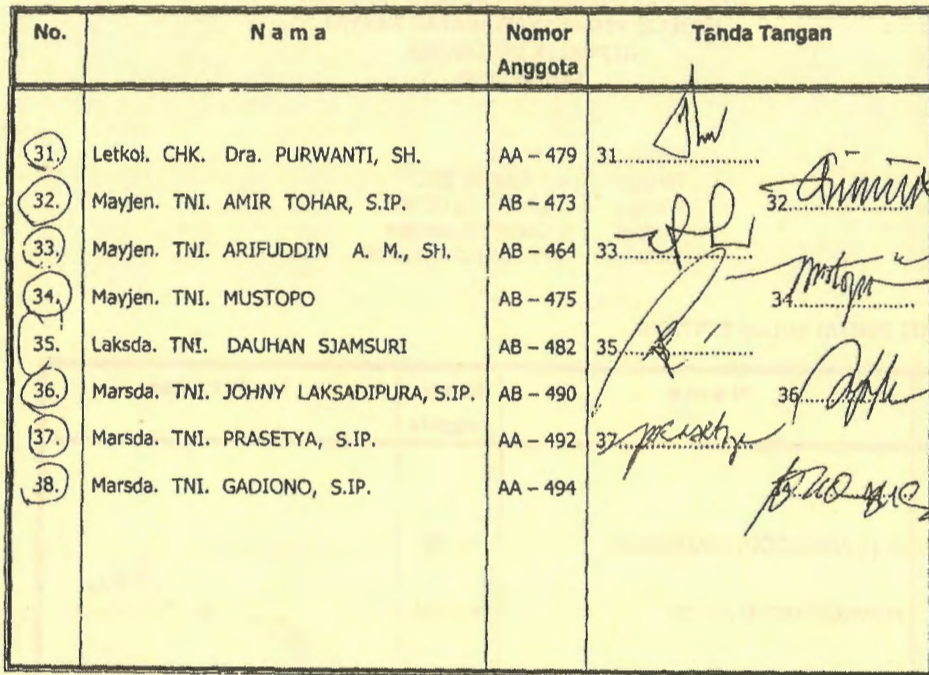 No. Nama Nomor Anggota Tanda Tangan
31. Letkol. CHK. Dra. PURWANTI, SH. AA – 479 31..................
32. Mayjen. TNI. AMIR TOHAR, S.IP. AB – 473 32..................
33. Mayjen. TNI. ARIFUDDIN A. M., SH. AB – 464 33..................
34. Mayjen. TNI. MUSTOPO AB – 475 34..................
35. Laksda. TNI. DAUHAN SJAMSURI AB – 482 35..................
36. Marsda. TNI. JOHNY LAKSADIPURA, S.IP. AB – 490 36..................
37. Marsda. TNI. PRASETYA, S.IP. AA – 492 37..................
38. Marsda. TNI. GADIONO, S.IP. AA – 494